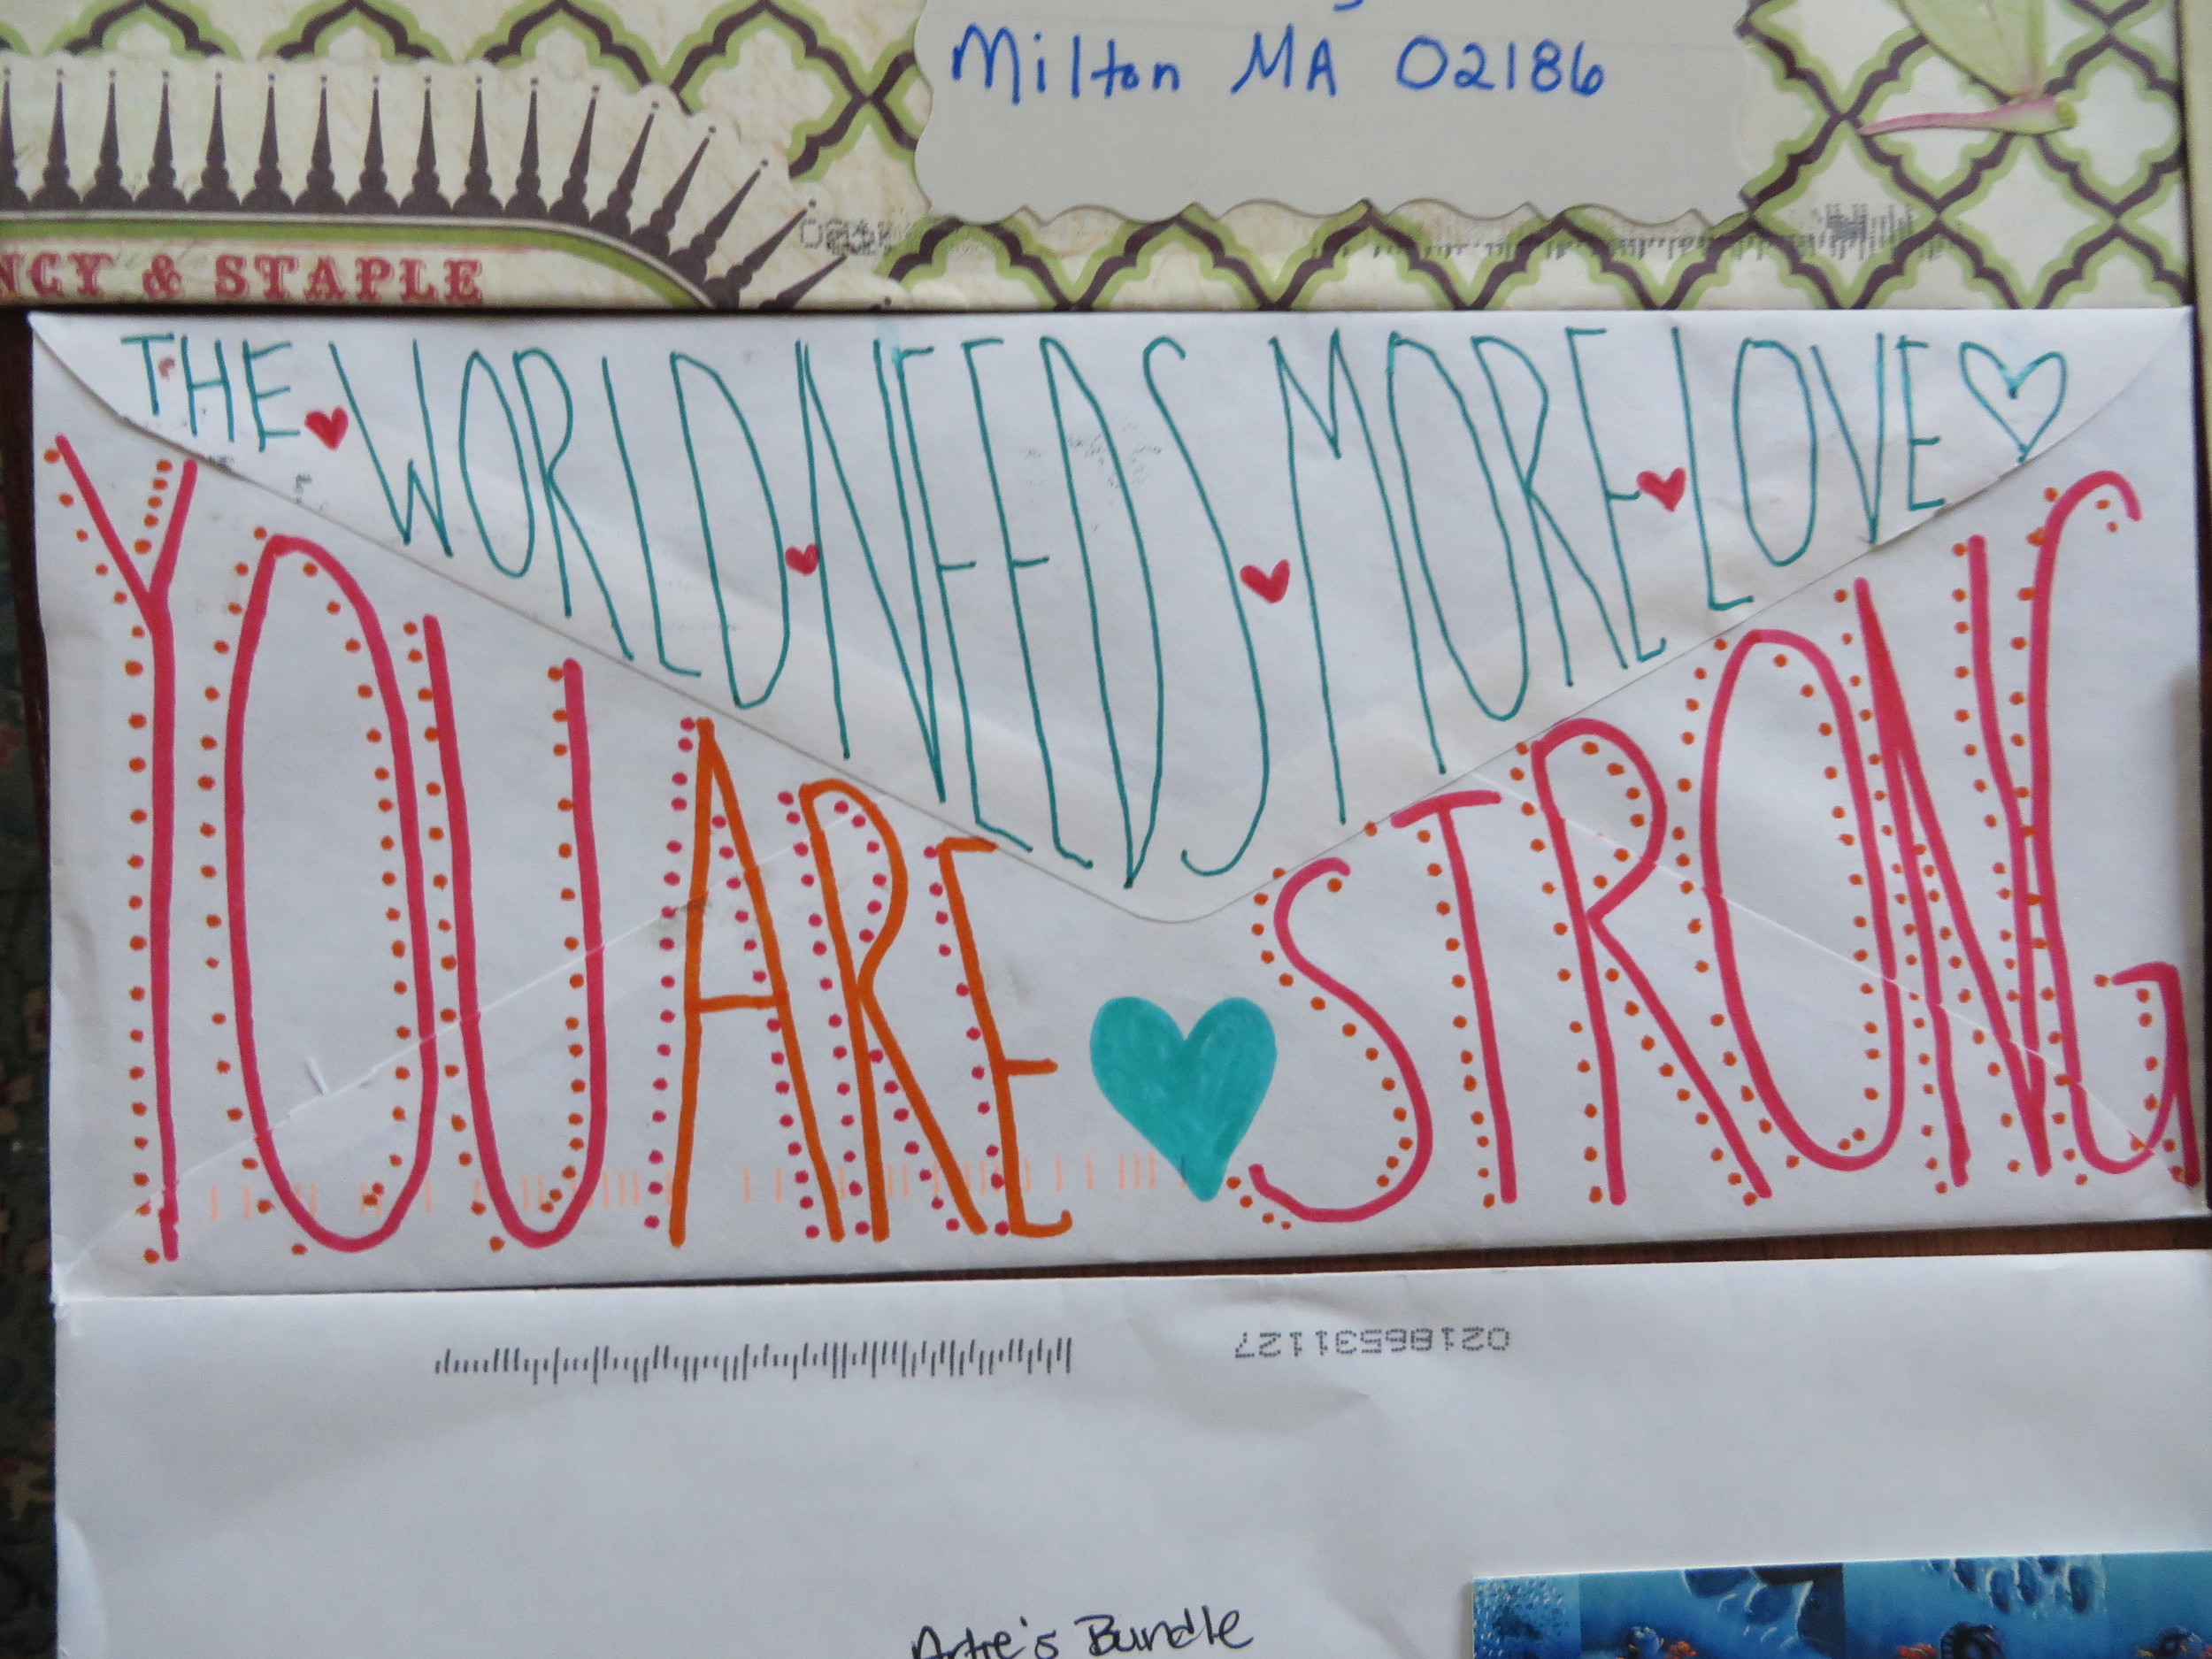 Milton MA 02186
NCY & STAPLE
THE WORLD NEEDS MORE LOVE
YOU ARE STRONG
02186531127
Artie's Bundle